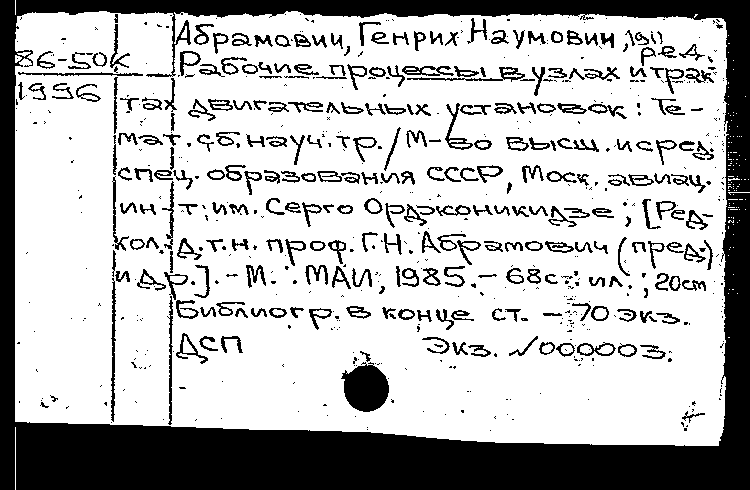 Абрамович, Генрих Наумович, 1911
ред.
86-50К
Рабочие процессы в узлах и трак
1996
тах двигательных установок : Те-
мат. сб. науч. тр. / М-во высш. и сред.
спец. образования СССР, Моск. авиац.
ин-т им. Серго Орджоникидзе ; [Ред-
кол.: д.т.н. проф. Г.Н. Абрамович (пред.)
и др.]. - М. : МАИ, 1985. - 68с.: ил. ; 20см
Библиогр. в конце ст. - 70 экз.
ДСП Экз. №000003.